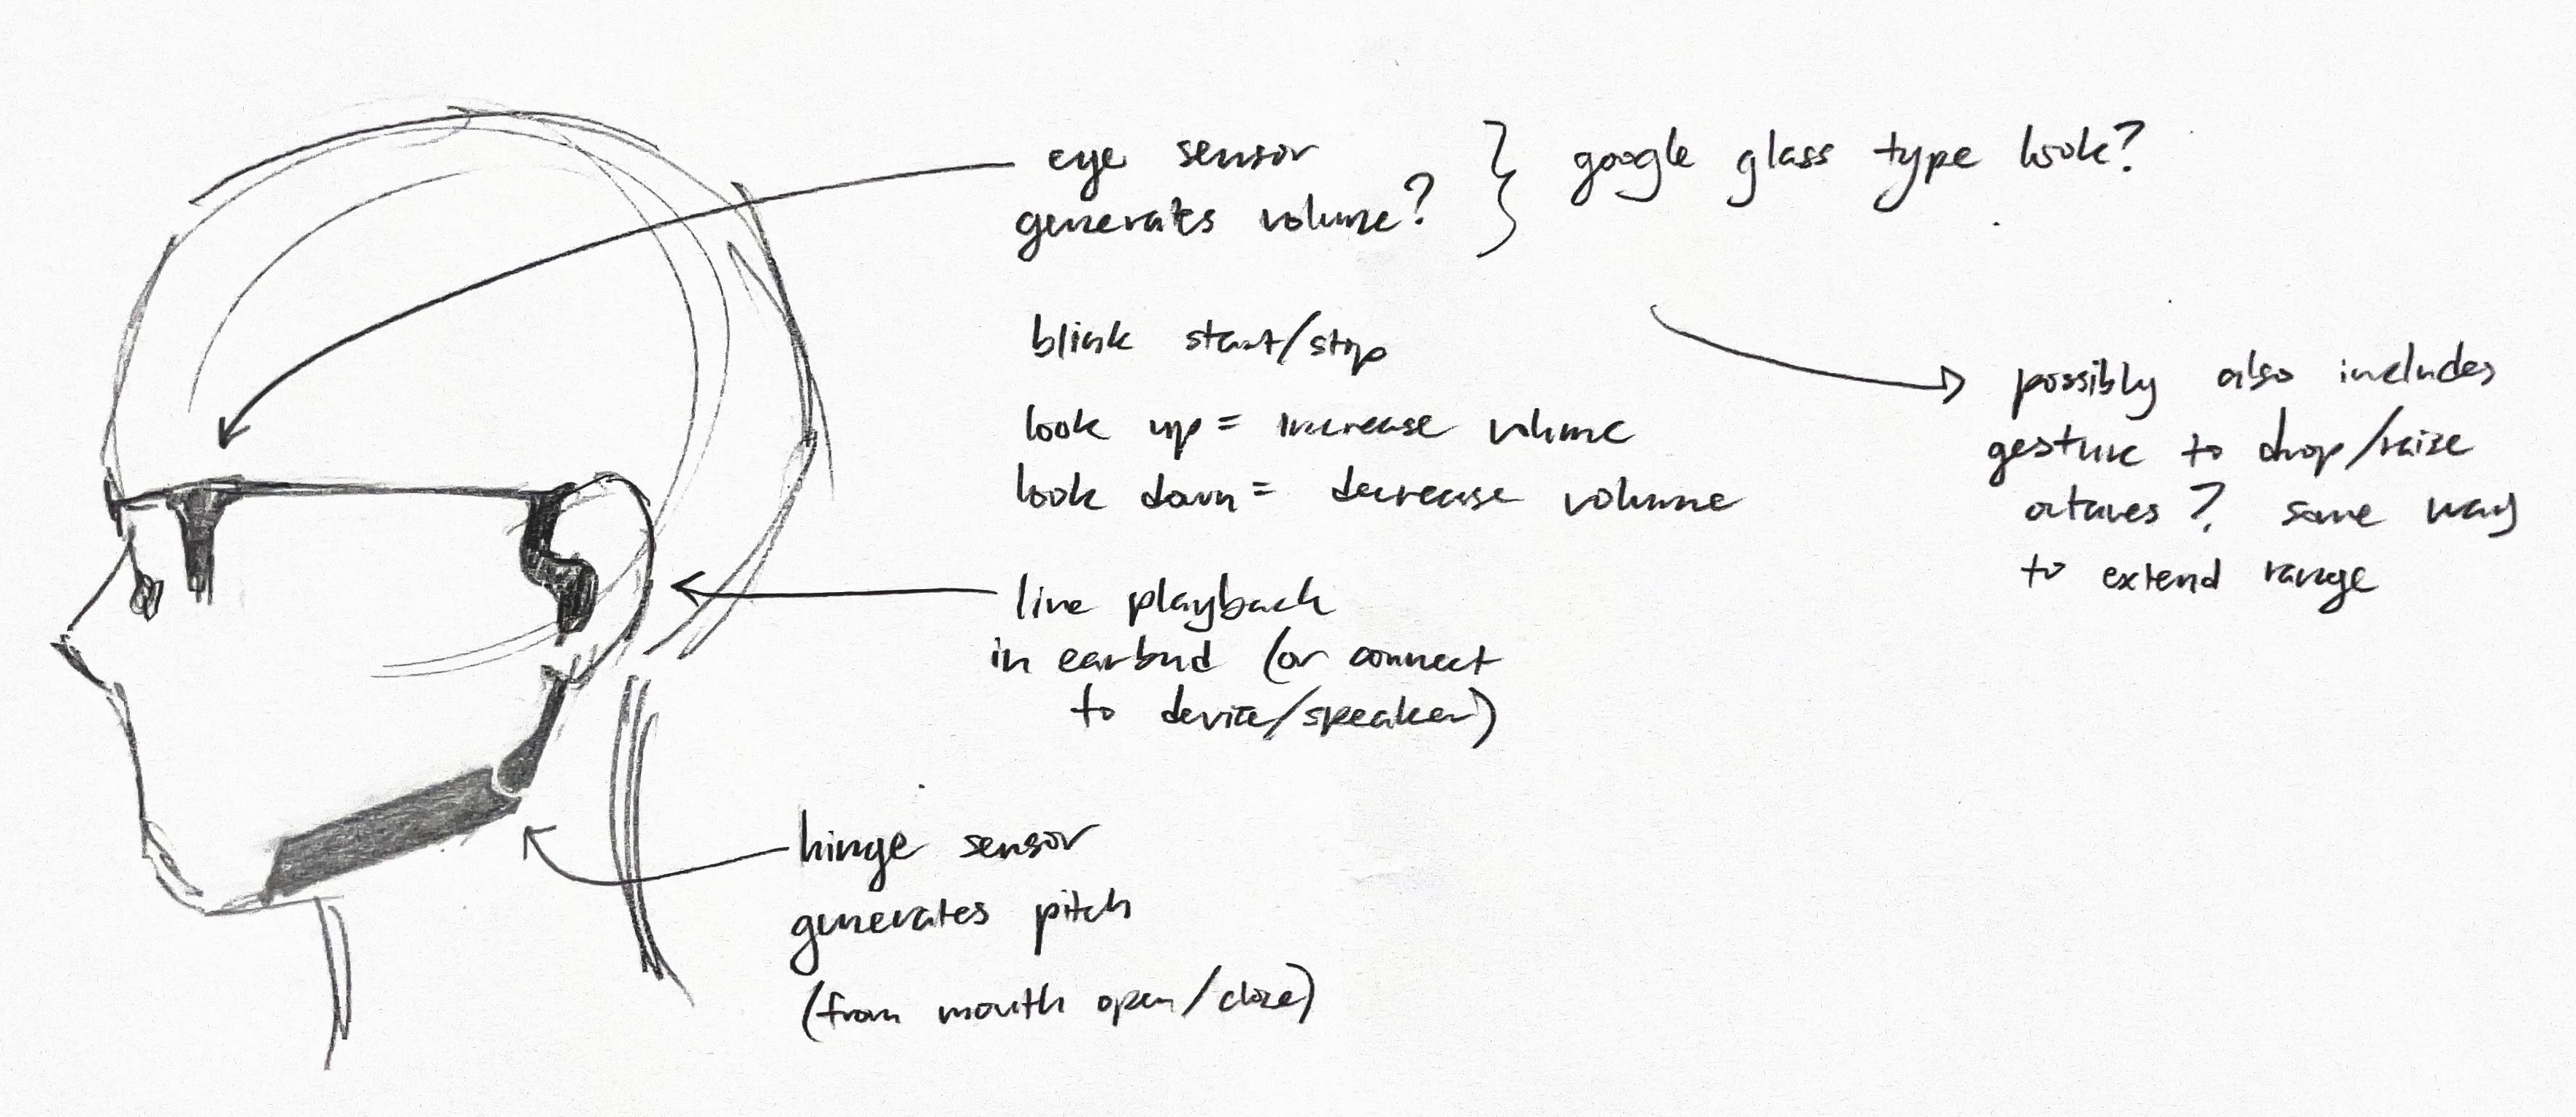 eye sensor
generates volume?
google glass type look?
blink start/stop
look up = increase volume
look down = decrease volume
possibly also includes
gesture to drop/raise
octaves? some way
to extend range
live playback
in earbud (or connect
to device/speaker)
hinge sensor
generates pitch
(from mouth open/close)